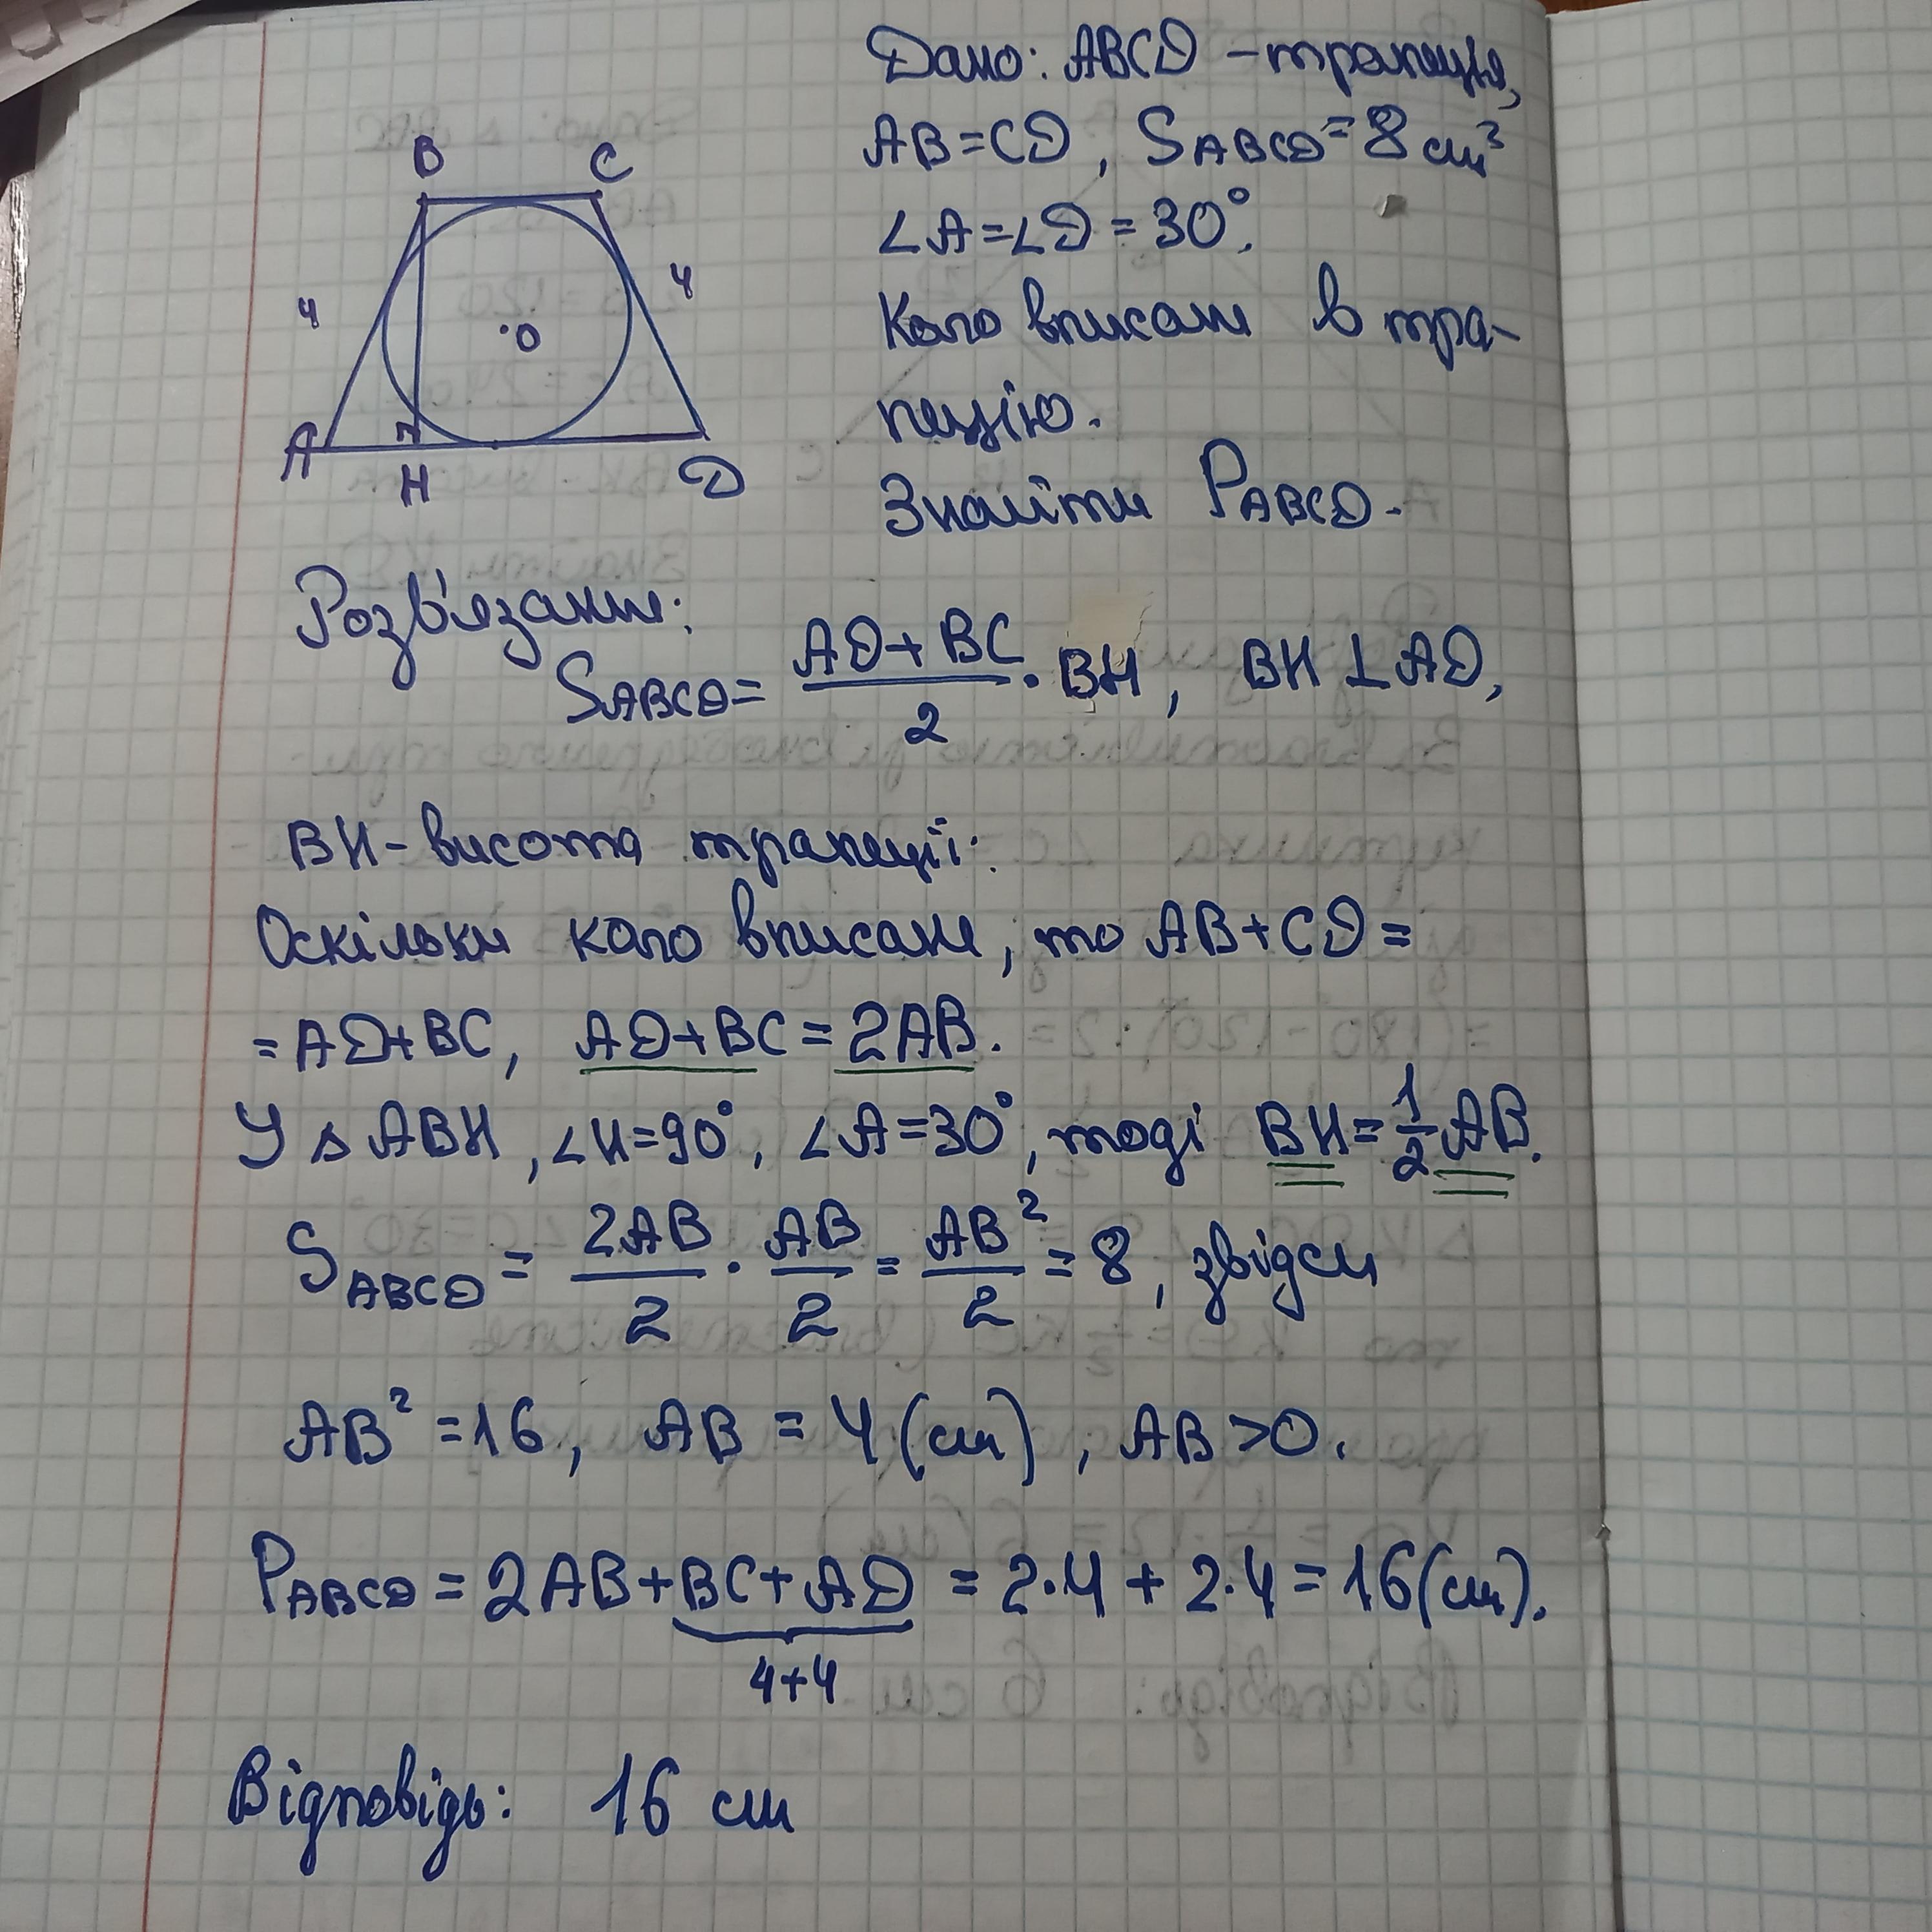 Дано: ABCD - трапеція,
AB = CD, S_ABCD = 8 см²
∠A = ∠D = 30°.
Коло вписане в тра-
пецію.
Знайти P_ABCD.
B C
4 4
O
A H D
Розв'язання:
S_ABCD = (AD + BC)/2 · BH, BH ⊥ AD,
BH - висота трапеції.
Оскільки коло вписане, то AB + CD =
= AD + BC, AD + BC = 2AB.
У △ ABH, ∠H = 90°, ∠A = 30°, тоді BH = 1/2 AB.
S_ABCD = 2AB/2 · AB/2 = AB²/2 = 8, звідси
AB² = 16, AB = 4 (см), AB > 0.
P_ABCD = 2AB + BC + AD = 2·4 + 2·4 = 16 (см).
4+4
Відповідь: 16 см